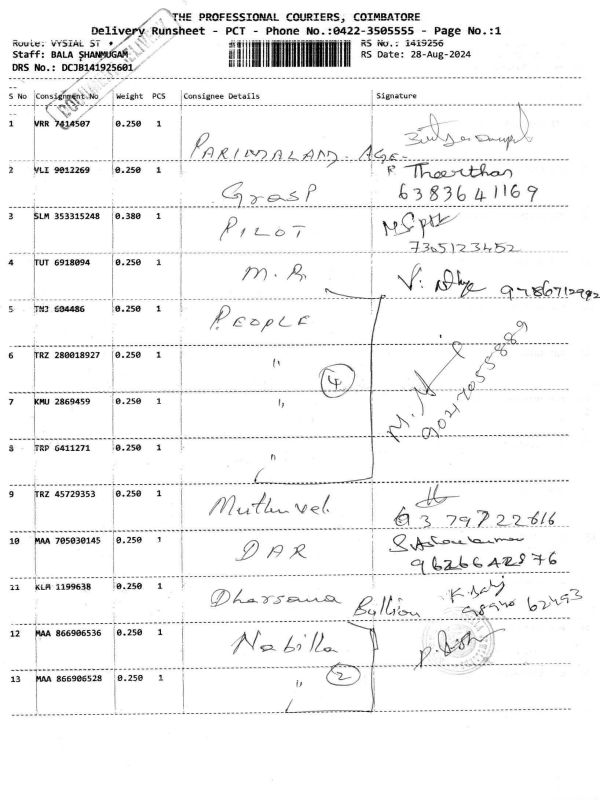 THE PROFESSIONAL COURIERS, COIMBATORE
Delivery Runsheet - PCT - Phone No.:0422-3505555 - Page No.:1
Route: VYSIAL ST *
RS No.: 1419256
Staff: BALA SHANMUGAM
RS Date: 28-Aug-2024
DRS No.: DCJB141925601
S No Consignment No Weight PCS Consignee Details Signature
1 VRR 7414507 0.250 1 PARIMALAM. AGE-
2 VLI 9012269 0.250 1 Grasp Theerthan
6383641169
3 SLM 353315248 0.380 1 PILOT
7305123452
4 TUT 6918094 0.250 1 M.R.
5 TNJ 604486 0.250 1 PEOPLE
6 TRZ 280018927 0.250 1 "
4
7 KMU 2869459 0.250 1 "
9047055889
8 TRP 6411271 0.250 1 "
9 TRZ 45729353 0.250 1 Muthuvel
6379722616
10 MAA 705030145 0.250 1 DAR
9626642876
11 KLM 1199638 0.250 1 Dharsana Bullion
98940 62493
12 MAA 866906536 0.250 1 Nabilla
13 MAA 866906528 0.250 1 " 2